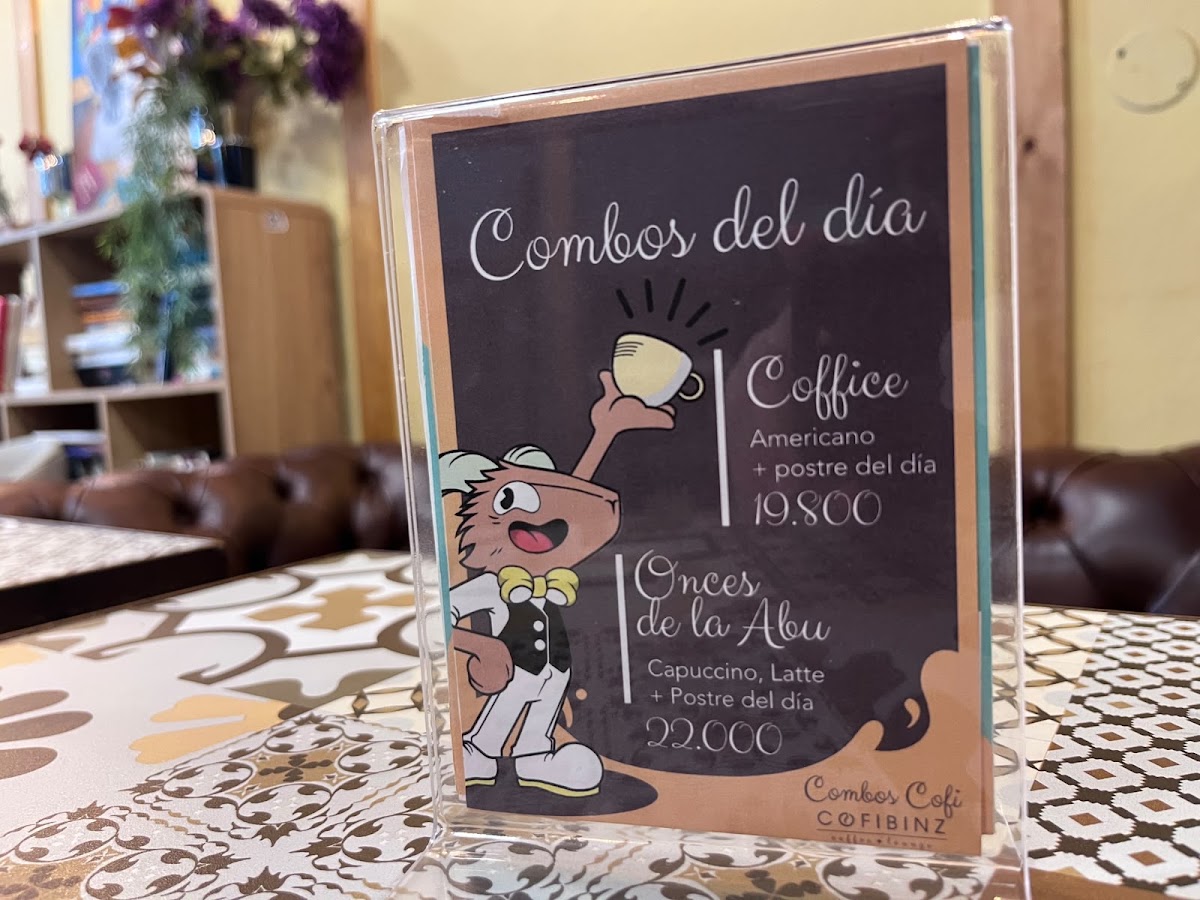 Combos del día
Coffice
Americano
+ postre del día
19.800
Onces
de la Abu
Capuccino, Latte
+ Postre del día
22.000
Combos Cofi
COFIBINZ
coffee • lounge